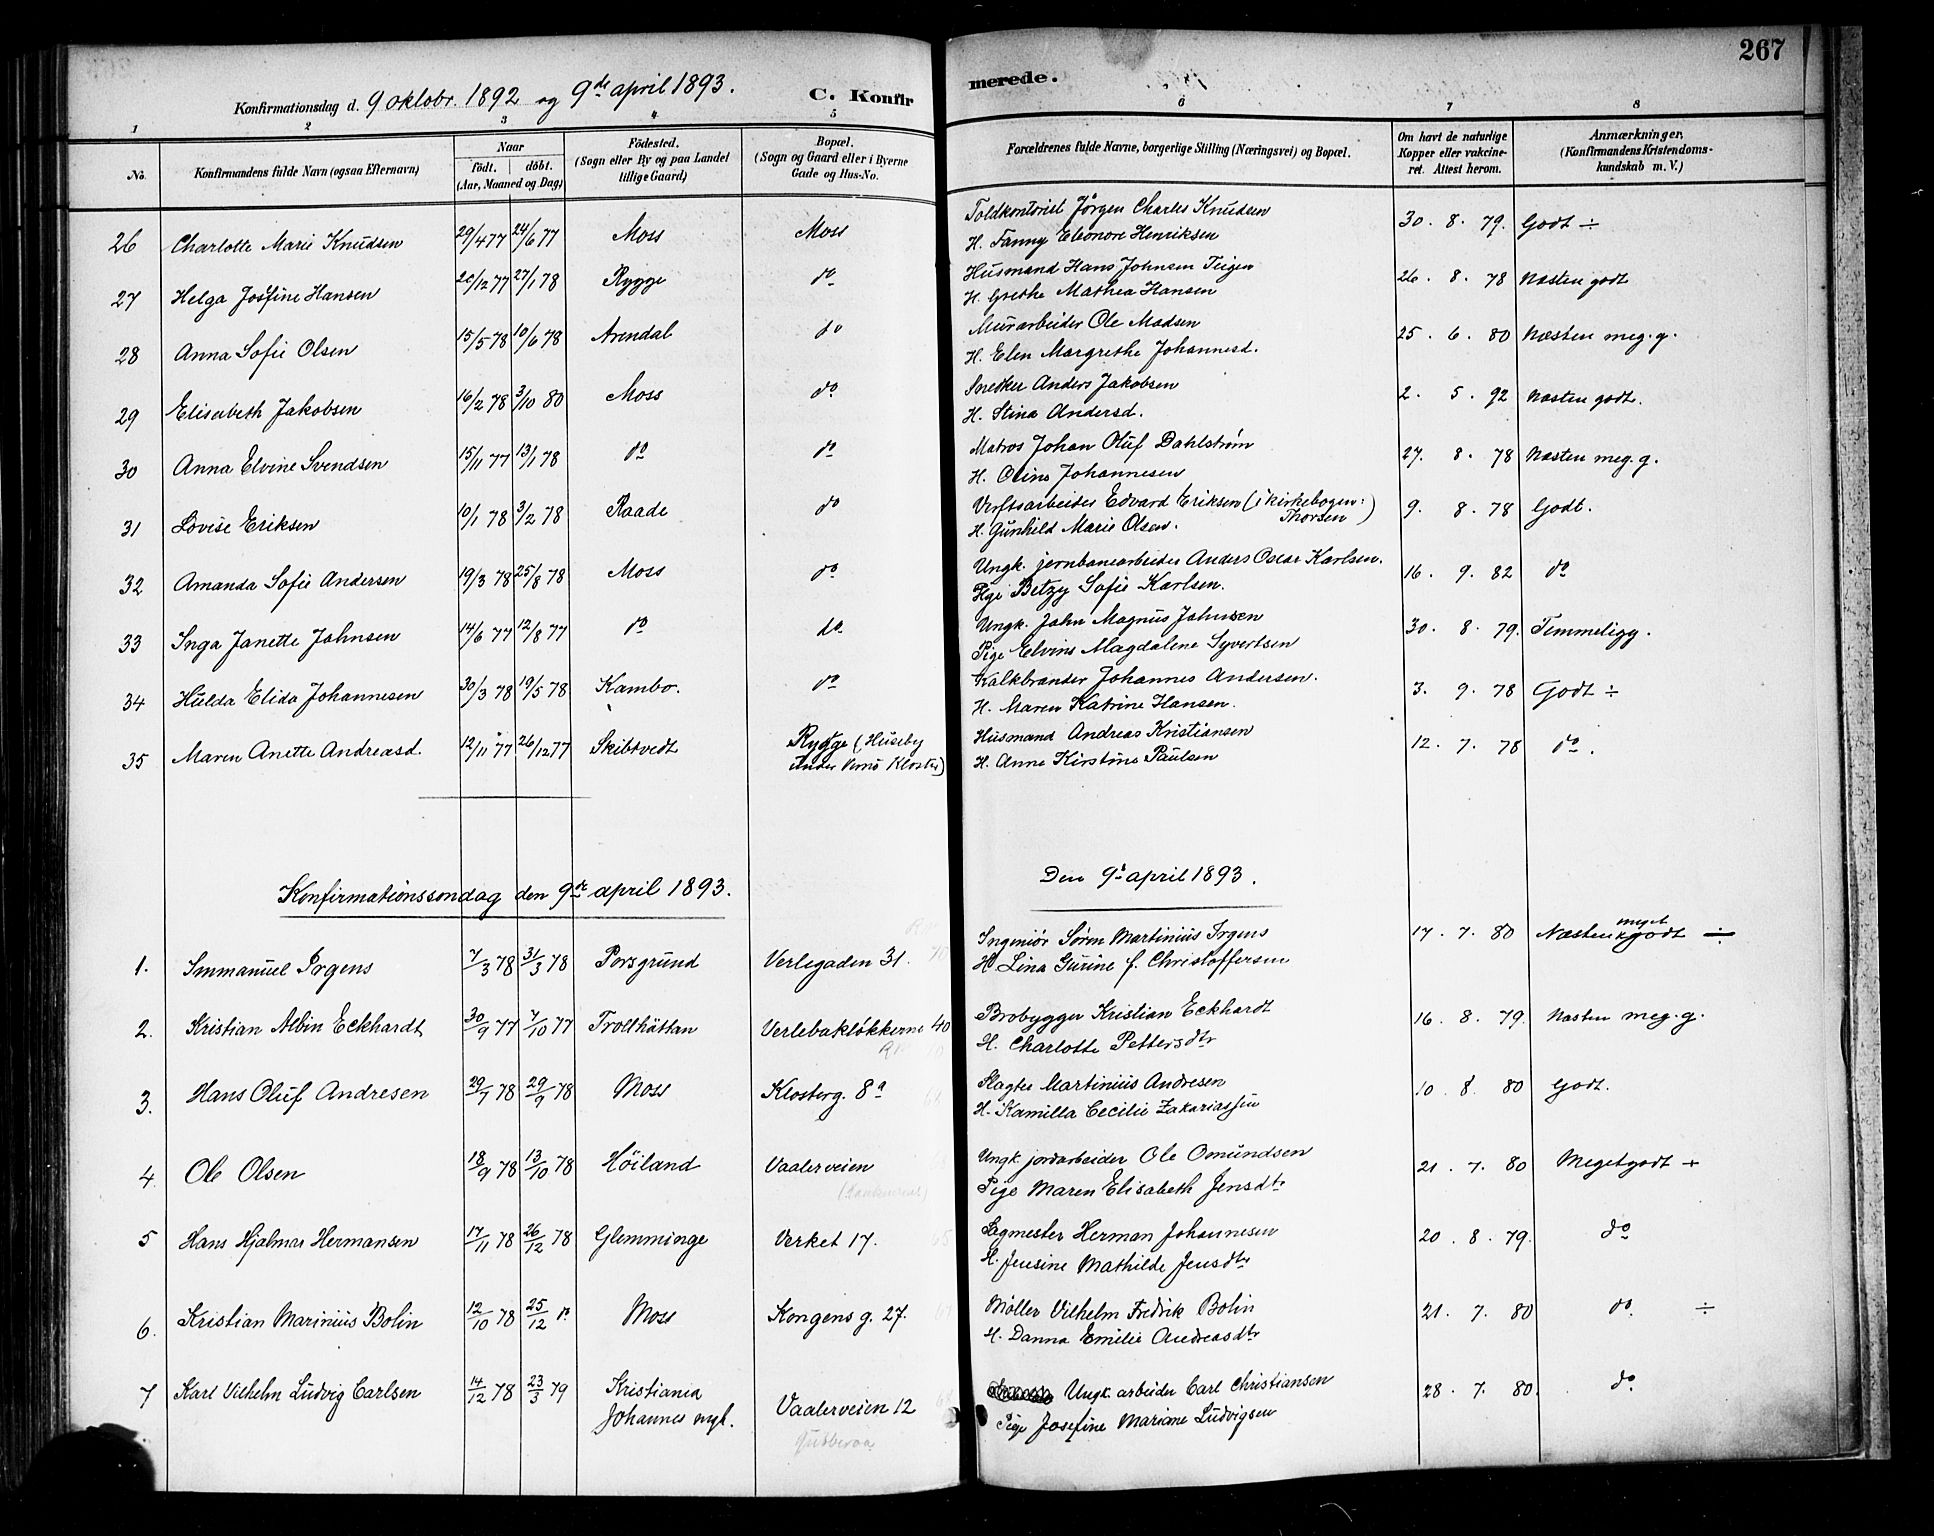 267
Konfirmationsdag d. 9 oktobr. 1892 og 9de april 1893.
C. Konfirmerede.
1 2 3 4 5 6 7 8
No.
Konfirmandens fulde Navn (ogsaa Efternavn)
Naar
födt. döbt.
(Aar, Maaned og Dag)
Födested.
(Sogn eller By og paa Landet
tillige Gaard)
Bopæl.
(Sogn og Gaard eller i Byerne
Gade og Hus-No.
Forældrenes fulde Navne, borgerlige Stilling (Næringsvei) og Bopæl.
Om havt de naturlige
Kopper eller vakcine-
ret. Attest herom.
Anmærkninger.
(Konfirmandens Kristendoms-
kundskab m. V.)
26 Charlotte Marie Knudsen 29/4 77 24/6 77 Moss Moss Toldkontorist Jörgen Charles Knudsen 30. 8. 79. Godt ÷
H. Fanny Eleonore Henriksen
27 Helga Josfine Hansen 20/12 77 27/1 78 Rygge do Husmand Hans Johnsen Teigen 26. 8. 78 Næsten godt
H. Grethe Mathea Hansen
28 Anna Sofie Olsen 15/5 78 10/6 78 Arendal do Murarbeider Ole Madsen 25. 6. 80 Næsten meg. g.
H. Elen Margrethe Johannesd.
29 Elisabeth Jakobsen 16/2 78 3/10 80 Moss do Snedker Anders Jakobsen 2. 5. 92 Næsten godt.
H. Stina Andersd.
30 Anna Elvine Svendsen 15/11 77 13/1 78 do do Matros Johan Oluf Dahlström 27. 8. 78 Næsten meg. g.
H. Oline Johannesen
31 Lovise Eriksen 10/1 78 3/2 78 Raade do Verftsarbeider Edvard Eriksen (i kirkebogen: Thorsen) 9. 8. 78 Godt.
H. Gunhild Marie Olsen.
32 Amanda Sofie Andersen 19/3 78 25/8 78 Moss do Ungk. jernbanearbeider Anders Oscar Karlsen. 16. 9. 82 do
Pige Betzy Sofie Karlsen.
33 Inga Janette Johnsen 14/6 77 12/8 77 do do Ungk. John Magnus Johnsen 30. 8. 79. Temmeligg.
Pige Elvine Magdalene Syvertsen
34 Hulda Elida Johannesen 30/3 78 19/5 78 Kambo. do Kalkbrænder Johannes Andersen. 3. 9. 78 Godt ÷
H. Maren Katrine Hansen.
35 Maren Anette Andreasd. 12/11 77 26/12 77 Skibtvedt Rygge (Huseby Husmand Andreas Kristiansen 12. 7. 78 do.
under Vernö Kloster) H. Anne Kirstine Paulsen
Konfirmationssøndag den 9de april 1893. Den 9d april 1893.
1. Immanuel Irgens 7/3 78 31/3 78 Porsgrund Verlegaden 31. Ingeniör Sören Martinius Irgens 17. 7. 80 Næsten meget godt ÷
H. Lina Gurine f. Christoffersen
2. Kristian Albin Eckhardt 30/9 77 7/10 77 Trolthättan Verlebakløkkerne 40 Brobygger Kristian Eckhardt 16. 8. 79. Næsten meg. g.
H. Charlotte Pettersdtr
3. Hans Oluf Andresen 29/7 78 29/9 78 Moss Klosterg. 8a Slagter Martinius Andresen 10. 8. 80 Godt.
H. Kamilla Cecilie Zakariassen
4. Ole Olsen 18/9 78 13/10 78 Höiland Vaalerveien Ungk. jordarbeider Ole Omundsen 21. 7. 80 Megetgodt ÷
Pige Maren Elisabeth Jensdtr
5 Hans Hjalmar Hermansen 17/11 78 26/12 78 Glemminge Verket 17. Sagmester Herman Johannesen 20. 8. 79. do
H. Jensine Mathilde Jensdtr
6. Kristian Marinius Bolin 12/10 78 25/12 do Moss Kongens g. 27. Möller Vilhelm Fredrik Bolin 21. 7. 80 do. ÷
H. Danna Emilie Andreasdtr
7 Karl Vilhelm Ludvig Carlsen 14/12 78 23/3 79 Kristiania Vaalerveien 12 Ungk. arbeider Carl Christiansen 28. 7. 80. do
Johannes mgh. Pige Josefine Mariane Ludvigsen